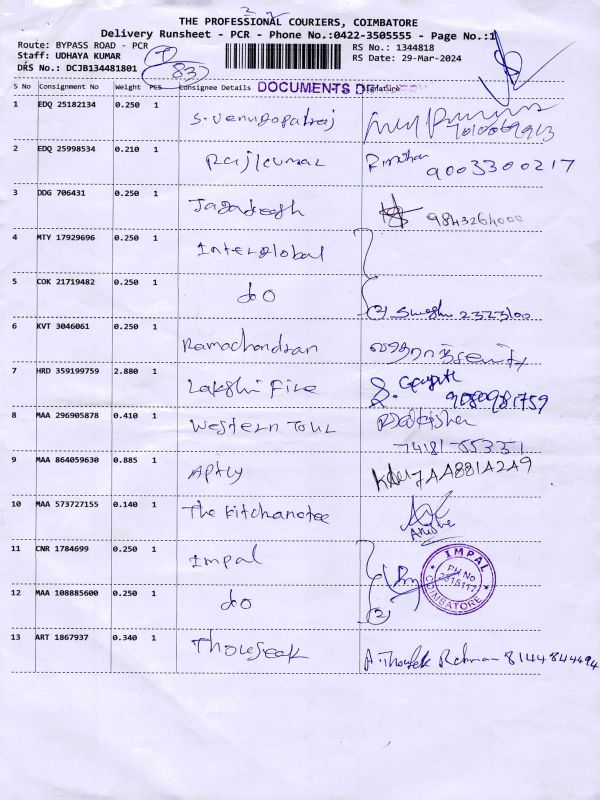 THE PROFESSIONAL COURIERS, COIMBATORE
Delivery Runsheet - PCR - Phone No.:0422-3505555 - Page No.:1
Route: BYPASS ROAD - PCR
RS No.: 1344818
Staff: UDHAYA KUMAR
RS Date: 29-Mar-2024
DRS No.: DCJB134481801
83
S No Consignment No Weight PCS Consignee Details DOCUMENTS Signature
1 EDQ 25182134 0.250 1 S. Venugopalraj
2 EDQ 25998534 0.210 1 Rajkumar 9003300217
3 DDG 706431 0.250 1 Jagadeesh 9843264000
4 MTY 17929696 0.250 1 Interglobal
5 COK 21719482 0.250 1 do (2) 2373100
6 KVT 3046061 0.250 1 Ramachandran security
7 HRD 359199759 2.880 1 Lakshi Fire
9080981759
8 MAA 296905878 0.410 1 Western Tour
74181-55331
9 MAA 864059630 0.885 1 Aptly
10 MAA 573727155 0.140 1 The Kitchanotee
11 CNR 1784699 0.250 1 Impal
IMPAL
PH No
2315117
COIMBATORE
12 MAA 108885600 0.250 1 do (2)
13 ART 1867937 0.340 1 Thowfeek A. Thowfek Rahman 8144844494